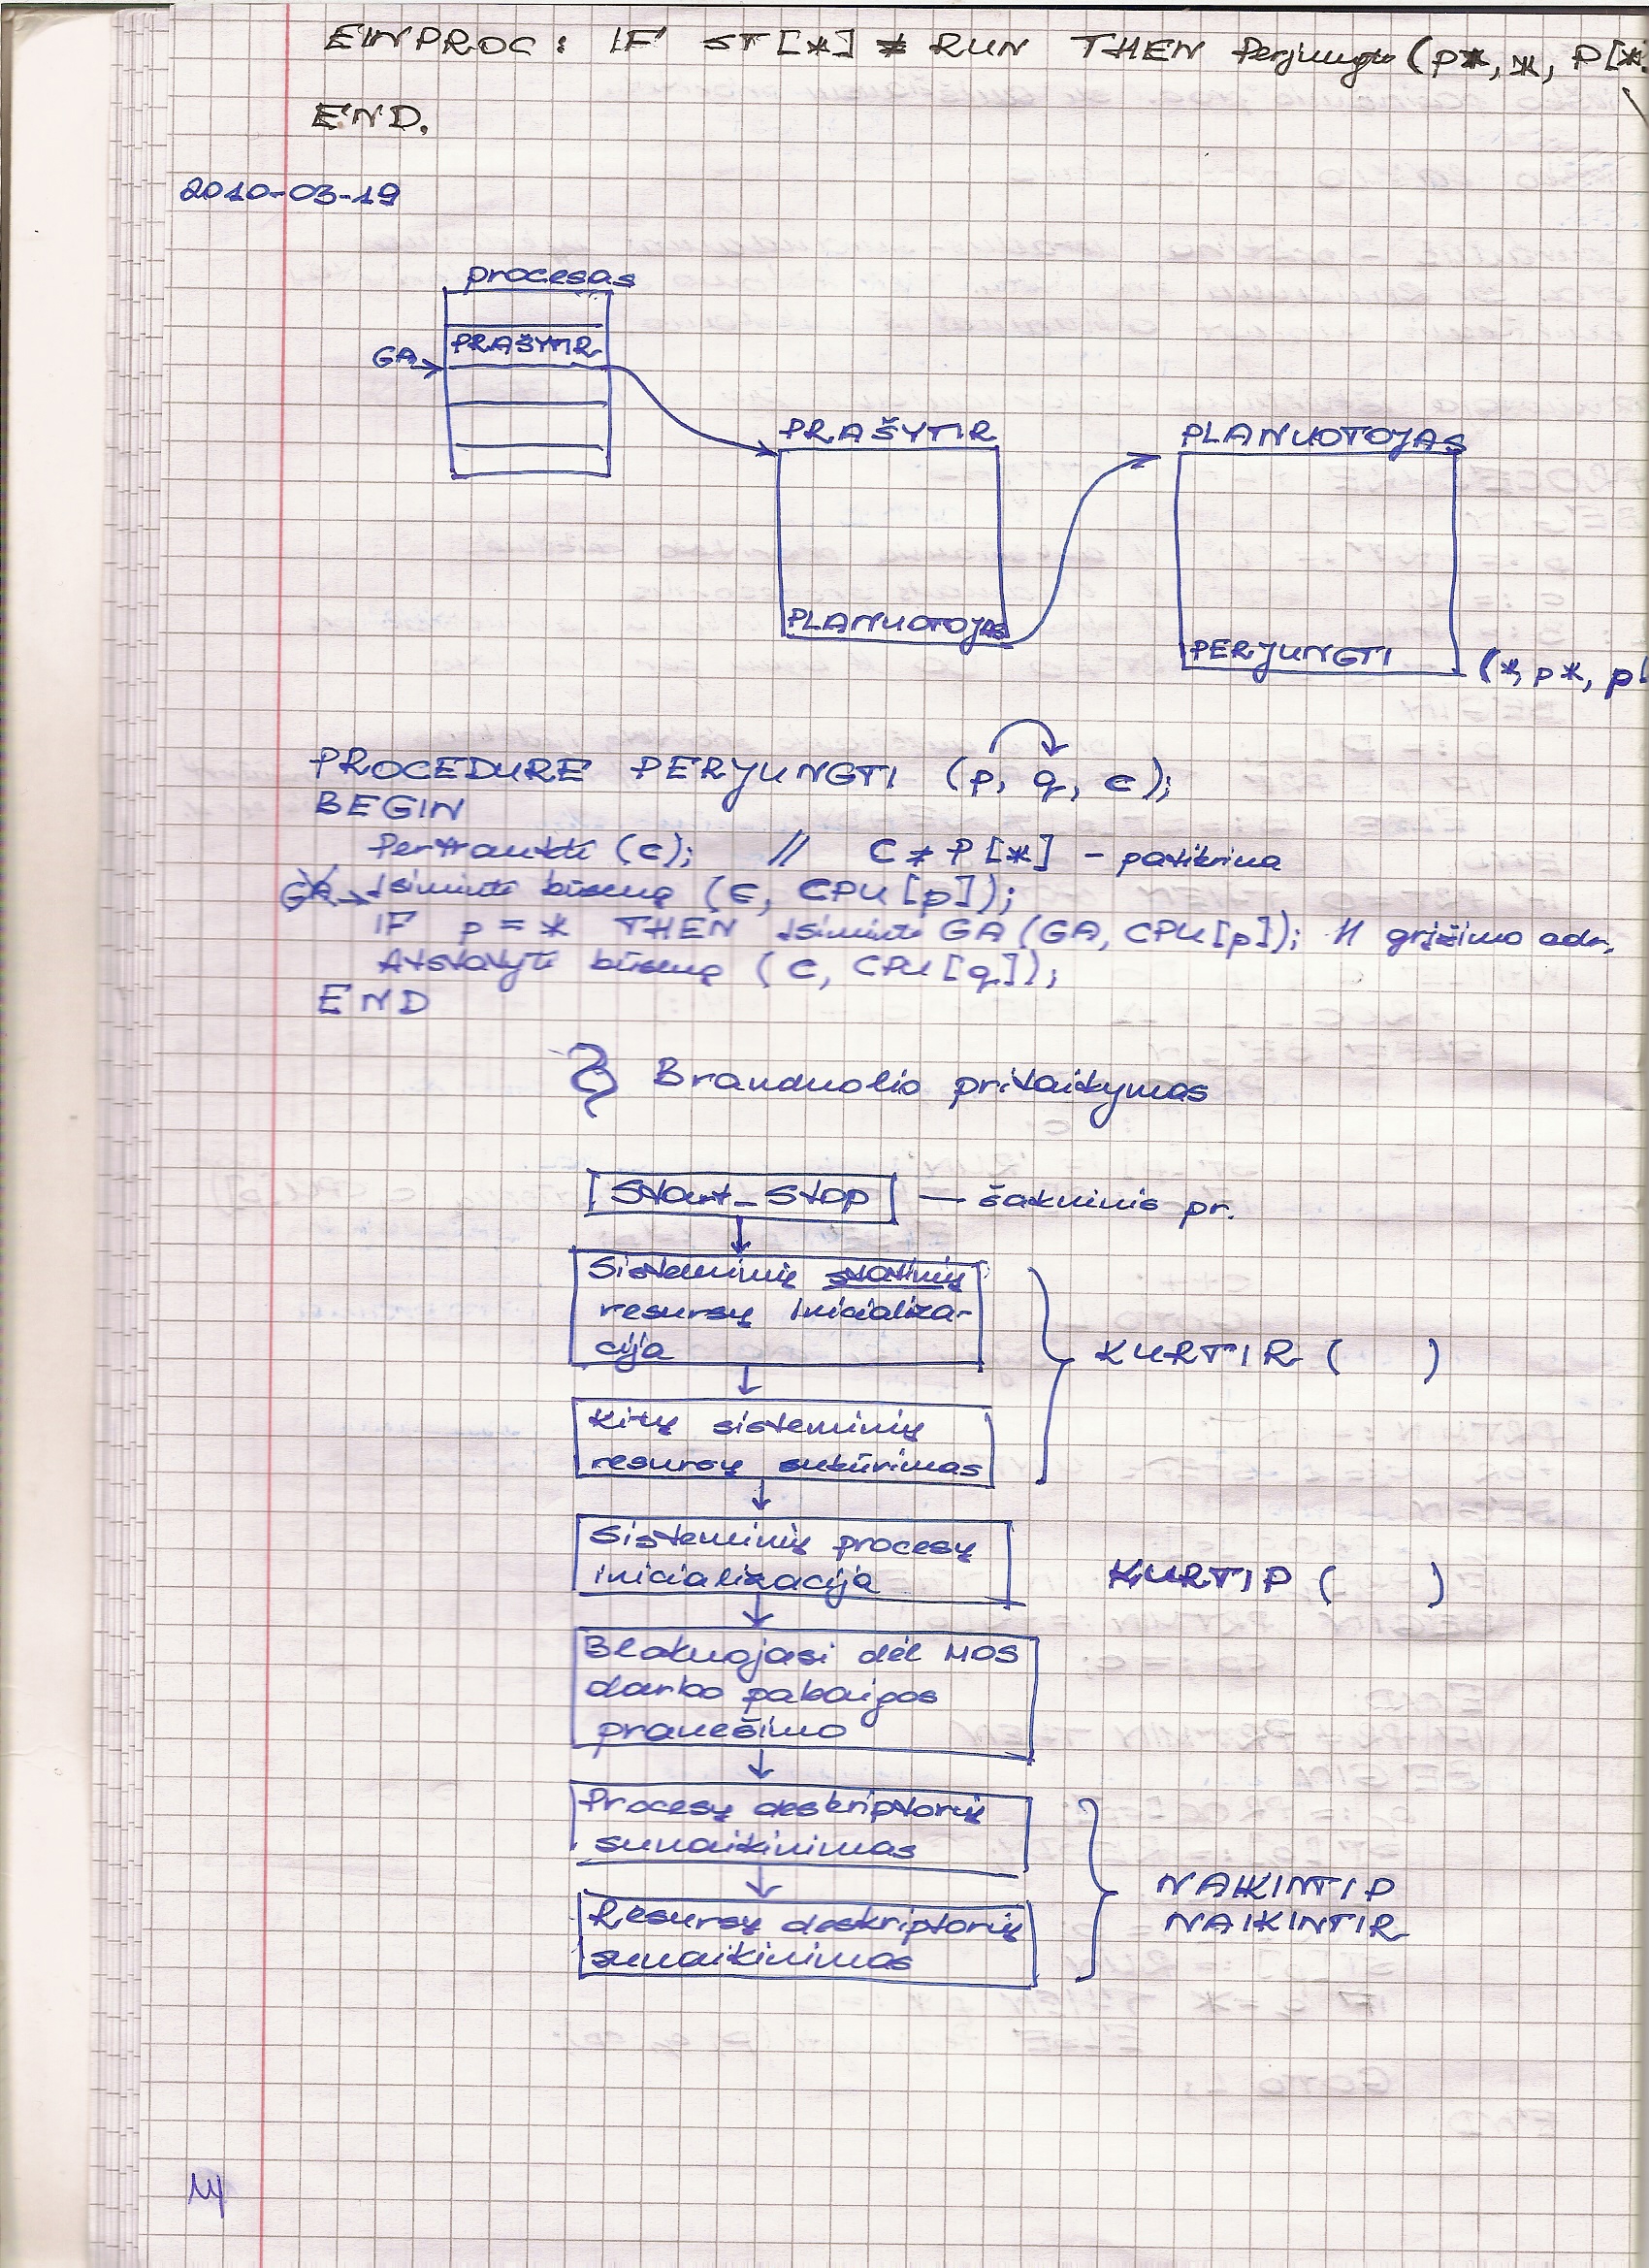 EINPROC: IF ST[*] ≠ RUN THEN Perjungti (p*, *, P[*
END.
2010-03-19
procesas
PRAŠYTIR
GA
PRAŠYTIR
PLANUOTOJAS
PLANUOTOJAS
PERJUNGTI (*, p*, p[
PROCEDURE PERJUNGTI (p, q, c);
BEGIN
Pertraukti (c); // C ≠ P[*] - patikrina
GA Įsiminti būseną (c, CPU[p]);
IF p = * THEN Įsiminti GA (GA, CPU[p]); // grįžimo adr.
Atstatyti būseną (c, CPU[q]);
END
§ Branduolio pritaikymas
[Start_Stop] — šakninis pr.
Sisteminių statinių
resursų inicializa-
cija
KURTIR ( )
Kitų sisteminių
resursų sukūrimas
Sisteminių procesų
inicializacija
KURTIP ( )
Blokuojasi dėl MOS
darbo pabaigos
pranešimo
Procesų deskriptorių
sunaikinimas
NAIKINTIP
NAIKINTIR
Resursų deskriptorių
sunaikinimas